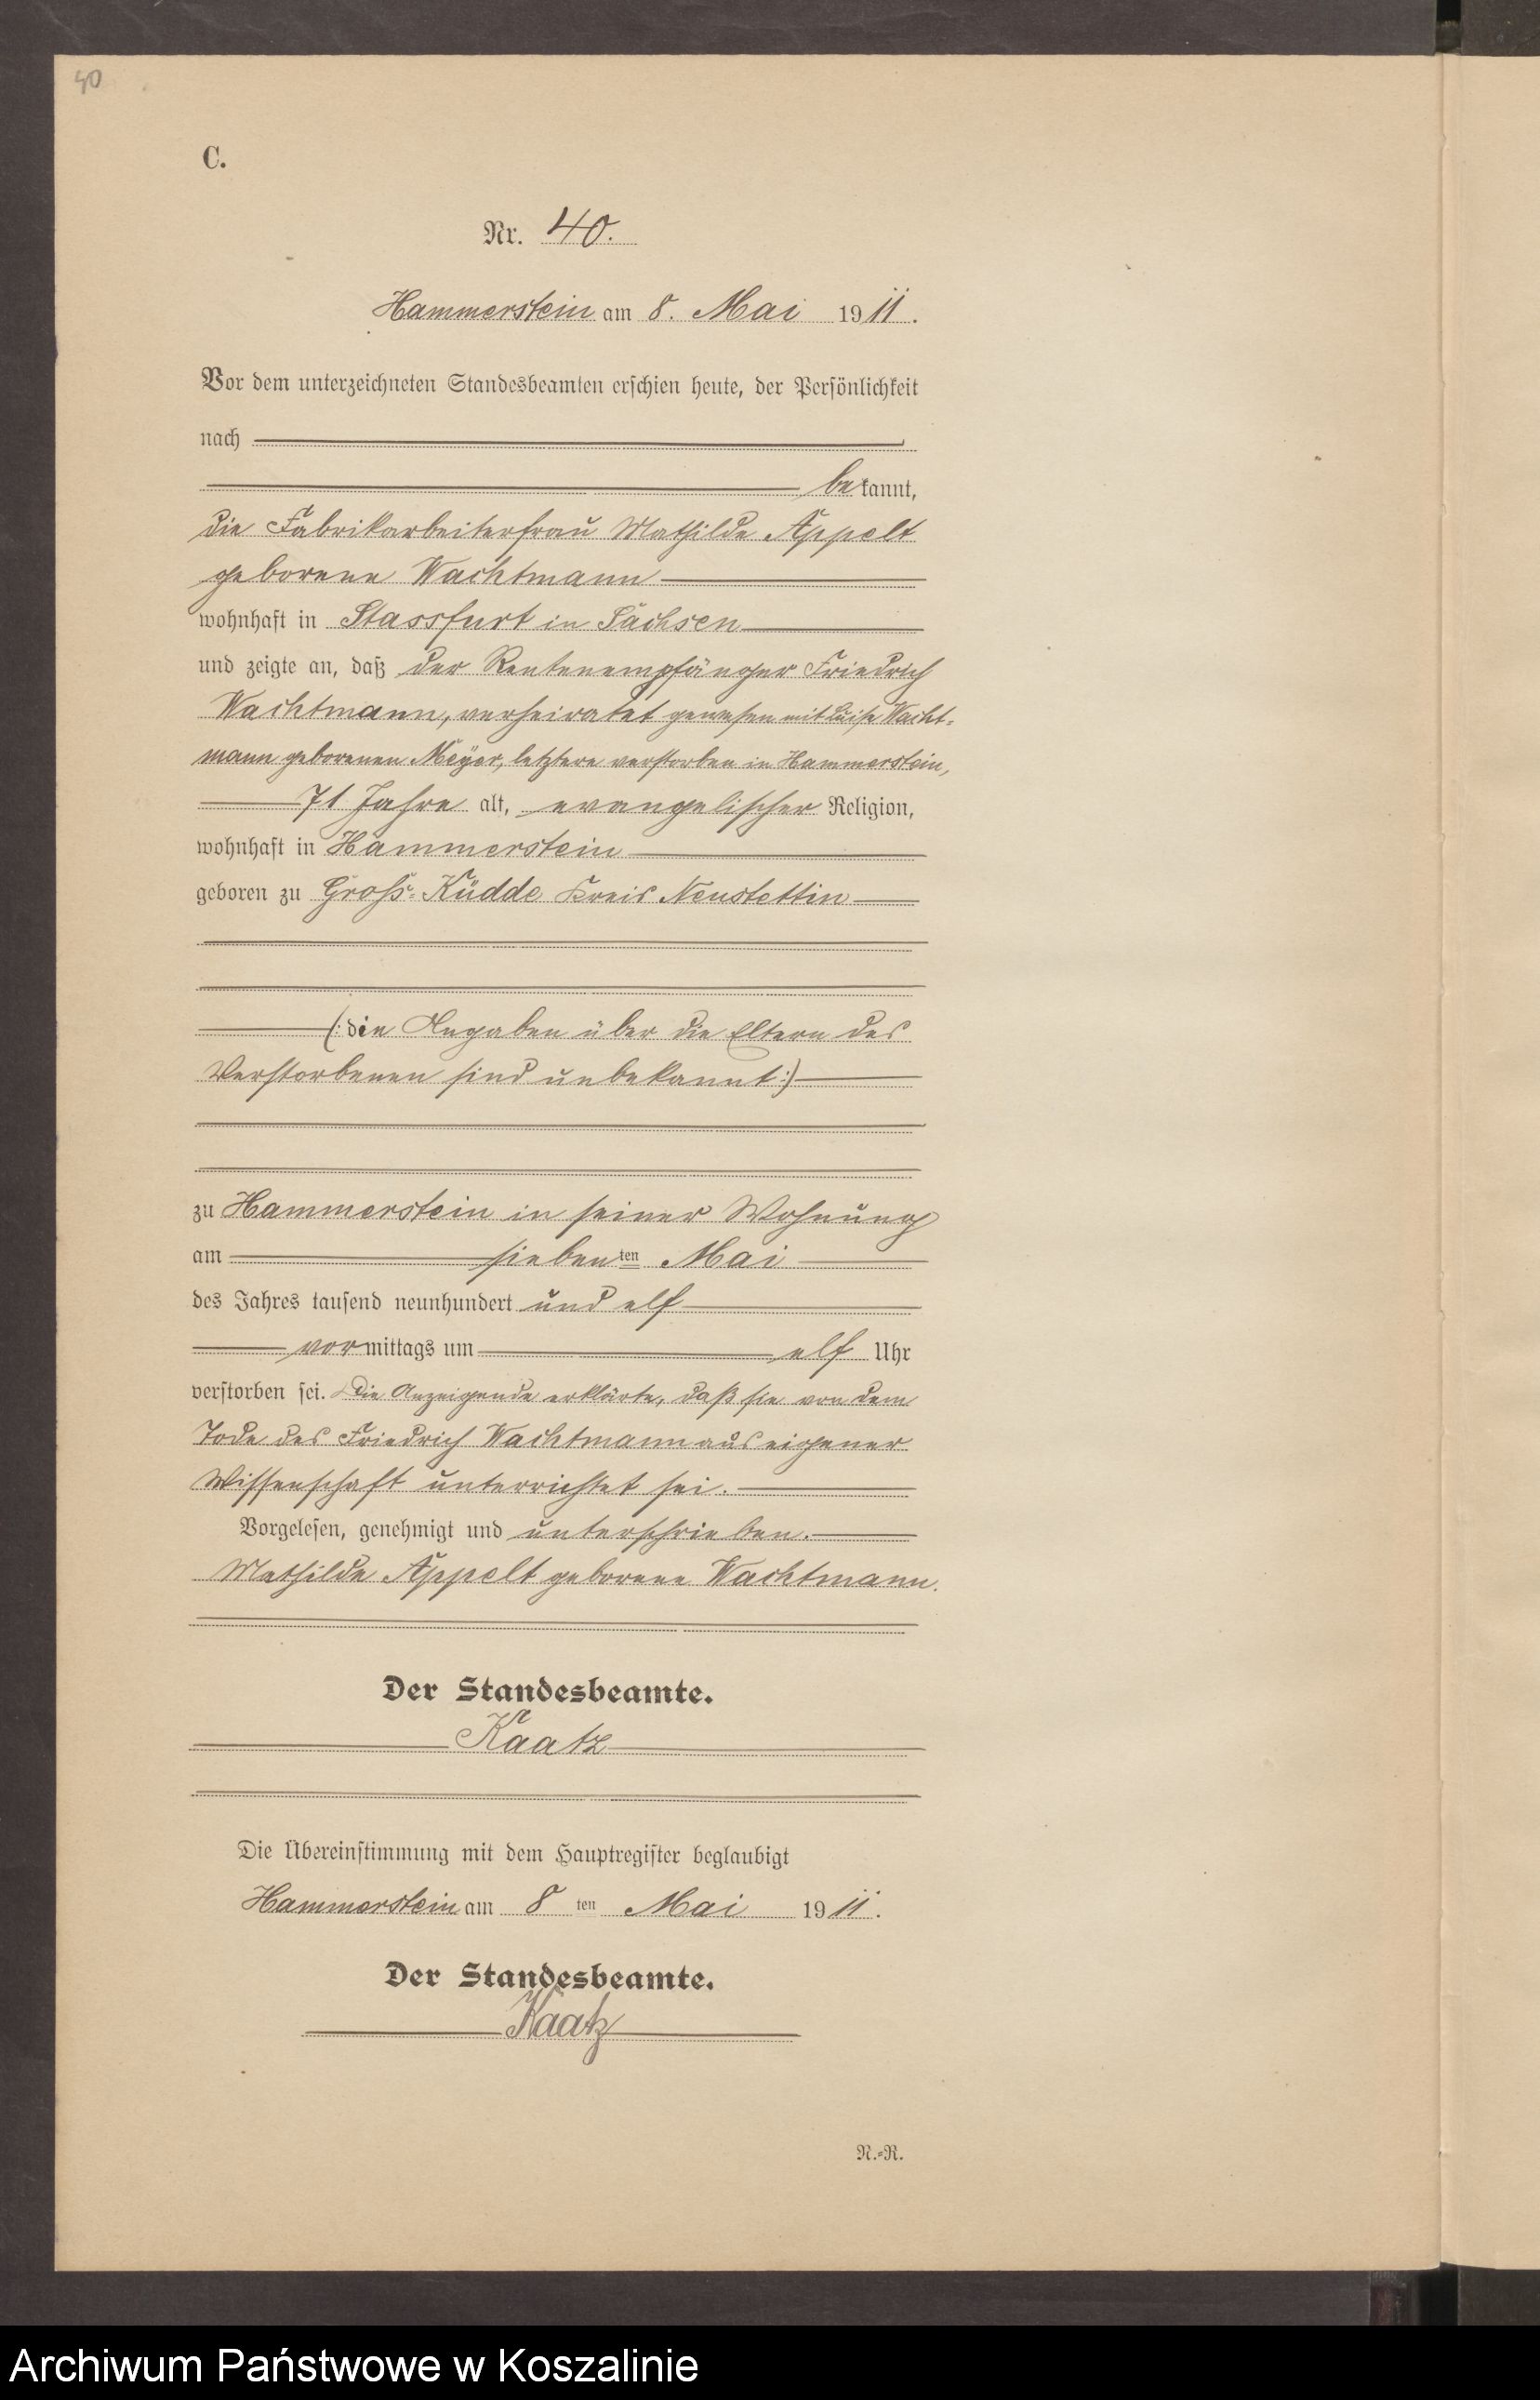 40
C.
Nr. 40.
Hammerstein am 8. Mai 1911.
Vor dem unterzeichneten Standesbeamten erschien heute, der Persönlichkeit
nach
bekannt,
die Fabrikarbeiterfrau Mathilde Appelt
geborene Wachtmann
wohnhaft in Stassfurt in Sachsen
und zeigte an, daß der Rentenempfänger Friedrich
Wachtmann, verheiratet gewesen mit Luise Wacht-
mann geborenen Meyer, letztere verstorben in Hammerstein,
71 Jahre alt, evangelischer Religion,
wohnhaft in Hammerstein
geboren zu Groß-Küdde Kreis Neustettin
(: die Angaben über die Eltern des
Verstorbenen sind unbekannt :)
zu Hammerstein in seiner Wohnung
am siebenten Mai
des Jahres tausend neunhundert und elf
vormittags um elf Uhr
verstorben sei. Die Anzeigende erklärte, daß sie von dem
Tode des Friedrich Wachtmann aus eigener
Wissenschaft unterrichtet sei.
Vorgelesen, genehmigt und unterschrieben.
Mathilde Appelt geborene Wachtmann.
Der Standesbeamte.
Kaatz
Die Übereinstimmung mit dem Hauptregister beglaubigt
Hammerstein am 8ten Mai 1911.
Der Standesbeamte.
Kaatz
N.-R.
Archiwum Państwowe w Koszalinie